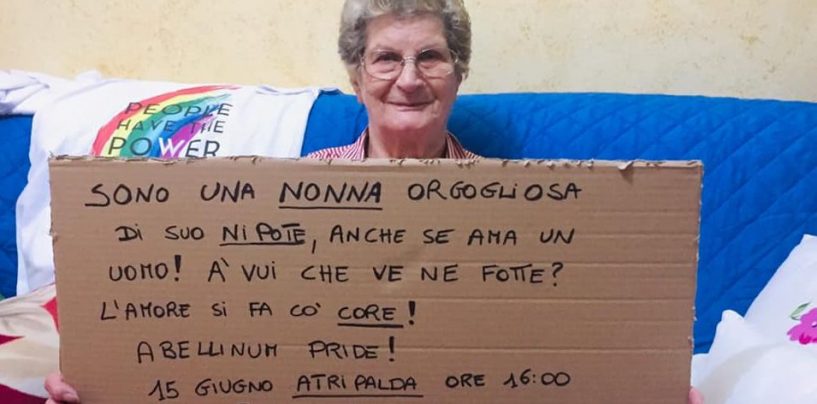 PEOPLE
HAVE THE
POWER
SONO UNA NONNA ORGOGLIOSA
DI SUO NIPOTE, ANCHE SE AMA UN
UOMO! A' VUI CHE VE NE FOTTE?
L'AMORE SI FA CO' CORE!
ABELLINUM PRIDE!
15 GIUGNO ATRIPALDA ORE 16:00